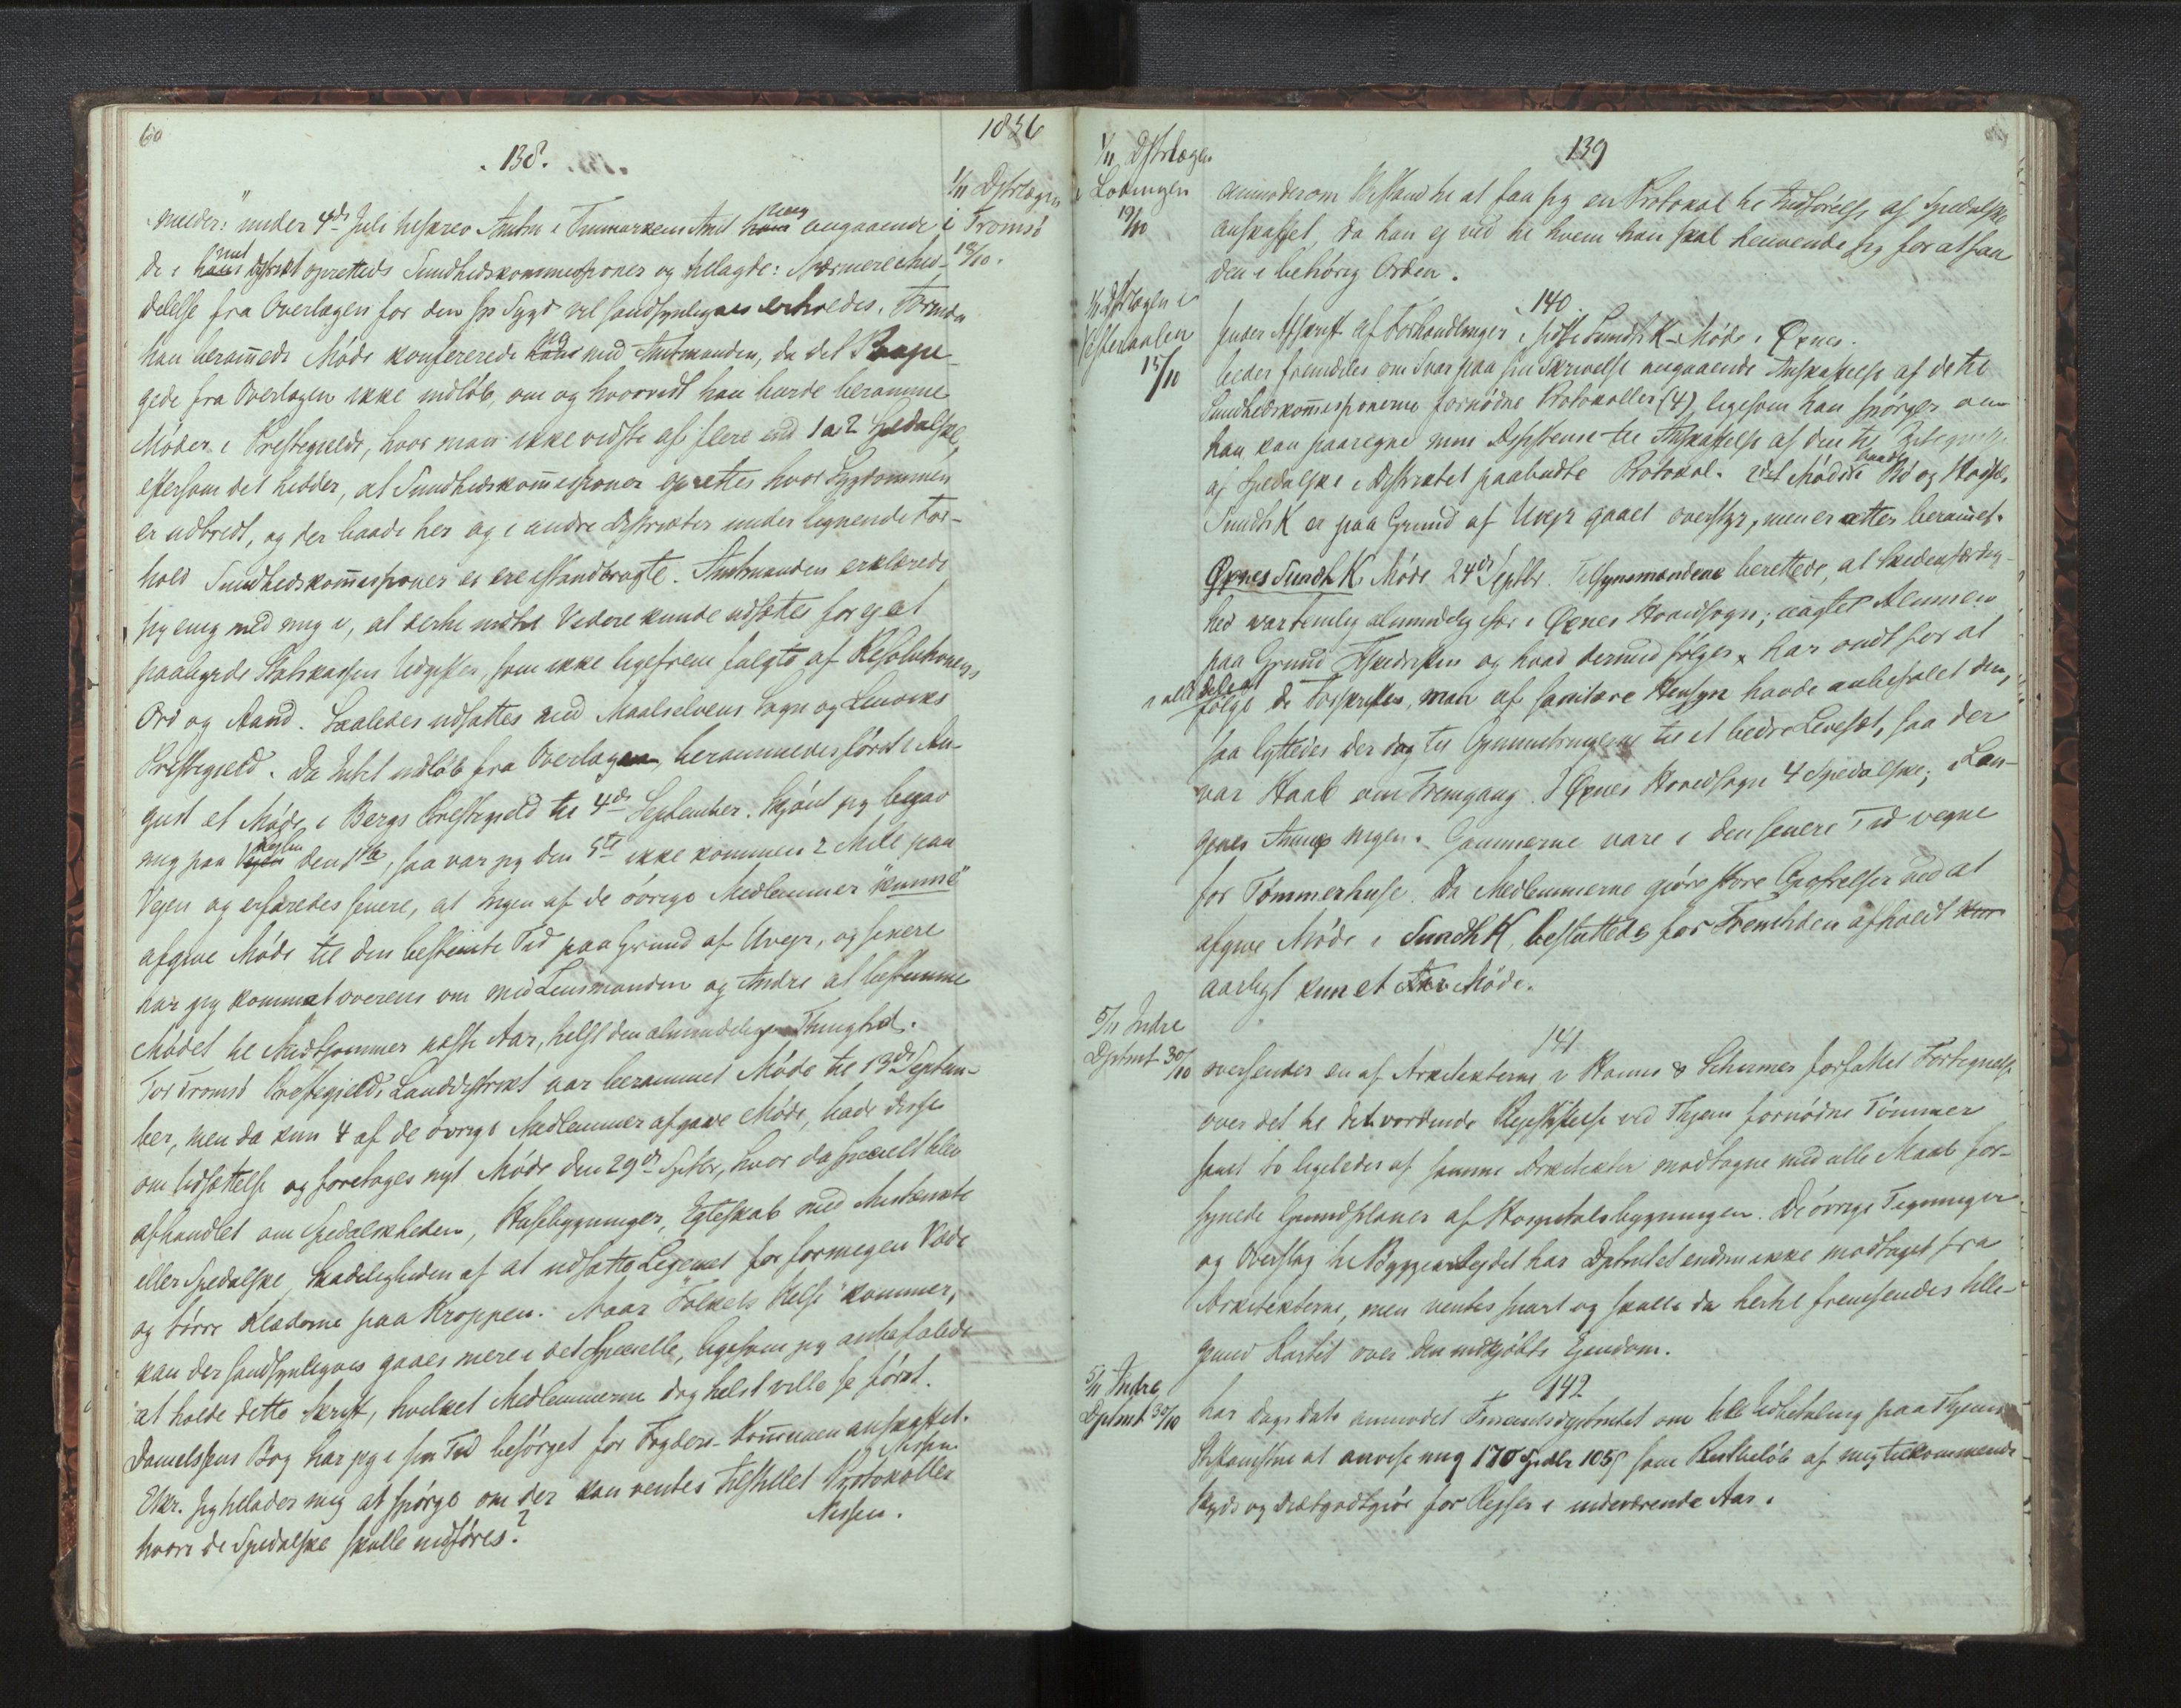 60
1856
138.
1/11 Dstrlægen
i Tromsö
18/10.
melder: "under 4de Juli tilskrev Amtm i Finmarkens Amt mig angaaende
de i mit Distrikt oprettede Sundhedskommissioner og tillagde: Nærmere Med-
delelse fra Overlægen for den sp Sygd vil sandsynligvis erholdes. Förinden
han berammede Möde konfererede jeg med Amtmanden, da det
gede fra Overlægen ikke indlöb, om og hvorvidt han burde beramme
Möder i Præstegjelde, hvor man ikke vidste af flere end 1 a 2 Spedalske,
eftersom det hedder, at Sundhedskommissioner oprettes hvor Sygdommen
er udbredt, og der baade her og i andre Distrikter under lignende For-
hold Sundhedskommissioner ei ere istandbragte. Amtmanden erklærede
sig enig med mig i, at dertil indtil Videre kunde udsættes for ej at
paabyrde Statskassen Udgifter, som ikke ligefrem fulgte af Resolutionens
Ord og Aand. Saaledes udsattes med Maalselvens Sogn og Lenviks
Præstegjeld. Da Intet indlöb fra Overlægen, berammedes först i Au-
gust et Möde i Bergs Præstegjeld til 4de September. Skjönt jeg begav
mig paa Reisen den 1ste, saa var jeg den 5te ikke kommen 2 Mile paa
Vejen og erfaredes senere, at Ingen af de övrige Medlemmer "kunne"
afgive Möde til den bestemte Tid paa Grund af Uvejr, og senere
har jeg kommet overens om med Lensmanden og Andre at bestemme
Mödet til Midtsommer næste Aar, helst den almindelige Thingtid.
For Tromsö Præstegjelds Landdistrikt var berammet Möde til 13de Septem-
ber, men da kun 4 af de övrige Medlemmer afgave Möde, bade disse
om Udsættelse og foretoges nyt Möde den 29de Septbr, hvor da specielt blev
afhandlet om Spedalskheden, Husebygninger, Egteskab med Mistænkte
eller Spedalske, Skadeligheden af at udsætte Legemet for formegen Væde
og törre Klæderne paa Kroppen. Naar "Folkets Helse" kommer,
kan der sandsynligvis gaaes mere i det Specielle, ligesom jeg anbefalede
at holde dette Skrift, hvilket Medlemmerne dog helst ville se först.
Danielssens Bog har jeg i sin Tid besörget for Fogderi-Kommunen anskaffet.
Eller. Jeg tillader mig at spörge om der kan ventes tilstillet Protokoller
hvori de Spedalske skulle indföres?
Nissen.
139
1/11 Dstrlægen
i Lodingen
19/10
anmoder om Bistand til at faa sig en Protokol til Indförelse af Spedalske
anskaffet, da han ej ved til hvem han skal henvende sig for at faa
den i behörig Orden.
140
1/11 Dstrlægen i
Vesteraalen
15/10
sender Afskrift af Forhandlinger i sidste Sundh K-Möde i Öxnes.
beder fremdeles om Svar paa sin Skrivelse angaaende Anskaffelse af de til
Sundhedskommissionerne fornödne Protokoller (4), ligesom han spörger om
han kan paaregne min Assistence til Anskaffelse af den til
af Spedalske i Distriktet paabudte Protokol. Et Möde i baade Bö og Hadsel
Sundh K er paa Grund af Uvejr gaaet overstyr, men er atter berammet.
Öxnes Sundh K. Möde 24de Septbr. Tilsynsmændene berettede, at Skidenfærdig-
hed var temlig almindelig især i Öxnes Hovedsogn; uagtet Almuen
paa Grund Fiskedriften og hvad dermed fölger har ondt for at
i alle Dele at fölge de Forskrifter, man af sanitære Hensyn havde anbefalet den,
saa lyttedes der dog til Opmuntringerne til et bedre Levesæt, saa der
var Haab om Fremgang. I Öxnes Hovedsogn 4 Spedalske; i Lan-
genes Annex ingen. Gammerne vare i den senere Tid vegne
for Tömmerhuse. Da Medlemmerne gjöre store Opofrelser ved at
afgive Möde i Sundh K, besluttedes for Fremtiden afholdt
aarligt kun et Möde.
5/11 Indre
Dptmt 30/10
141
oversender en af Arkitekterne v Hanno & Schirmer forfattet Fortegnelse
over det til det vordende Plejestiftelse ved Thjem fornödne Tömmer
samt to ligeledes af samme Arkitekter modtagne med alle Maal for-
synede Grundplaner af Hospitalsbygningen. De övrige Tegninger
og Overslag til Byggearbejdet har Dptmtet endnu ikke modtaget fra
Arkitekterne, men ventes snart og skulle da hertil fremsendes tilli-
gemed Kartet over den indkjöbte Ejendom.
5/11 Indre
Dptmt 30/10
142
har Dags Dato anmodet Finantsdeptmtet om ved Udbetaling paa Thjems
Stiftamtstue at anvise mig 170 Spdlr 105 s som Restbelöb af mig tilkommende
Skyds og Diætgodtgjör for Rejser i indeværende Aar.